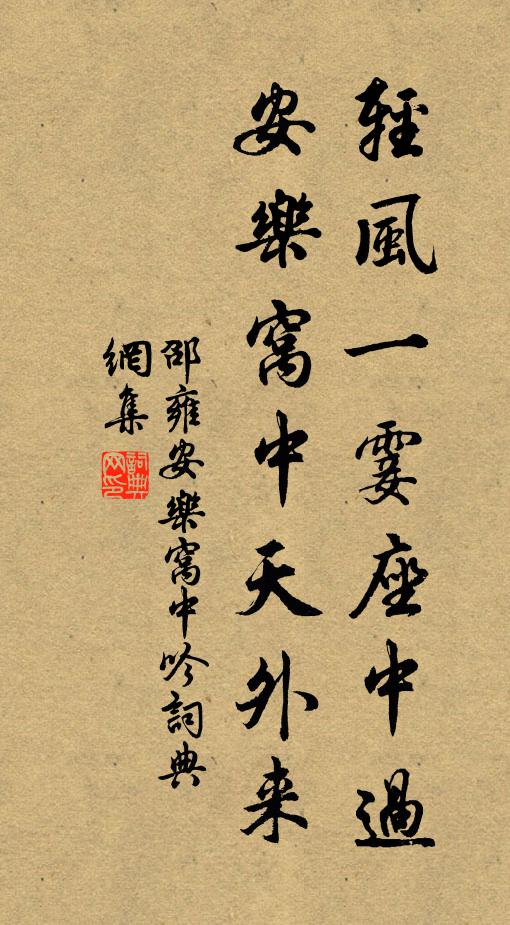 輕風一霎座中過
安樂窩中天外来
邵雍安樂窩中吟詞典
網集
詞典
网印